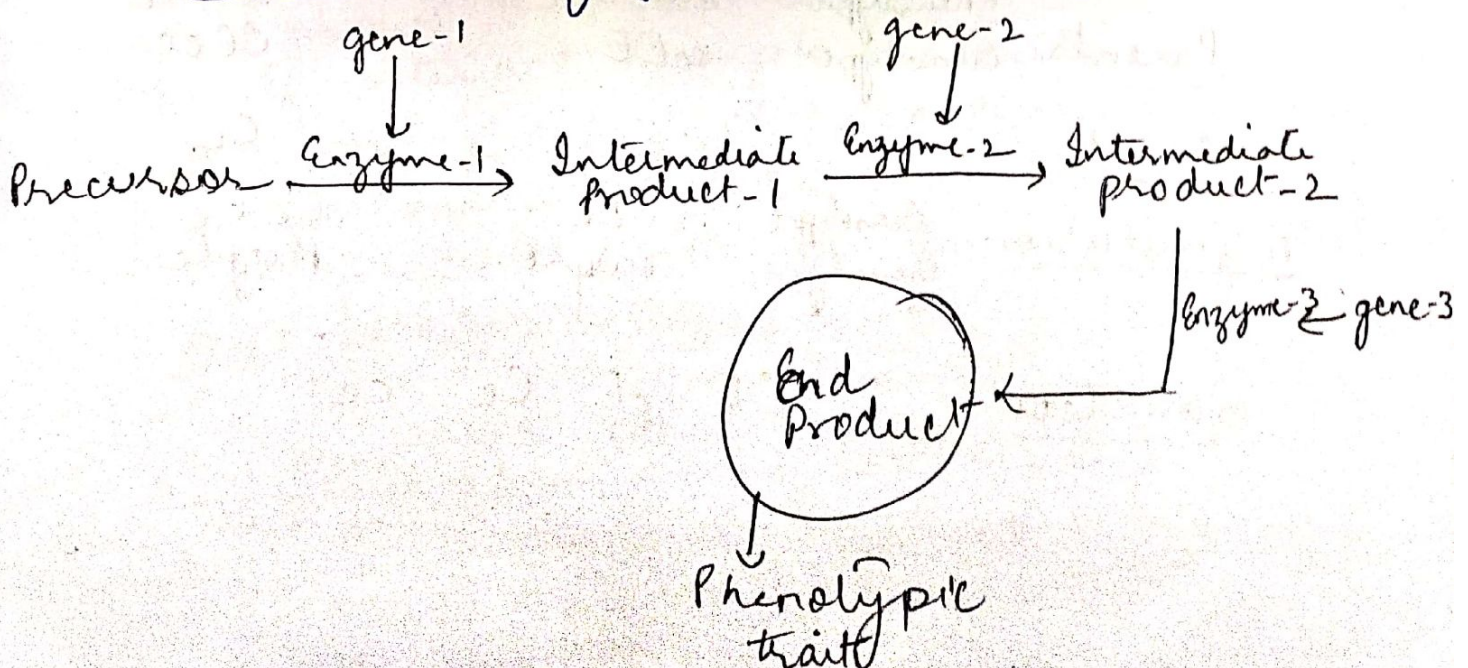 gene-1
gene-2
Precursor
Enzyme-1
Intermediate
product-1
Enzyme-2
Intermediate
product-2
Enzyme-3
gene-3
End
Product
Phenotypic
trait